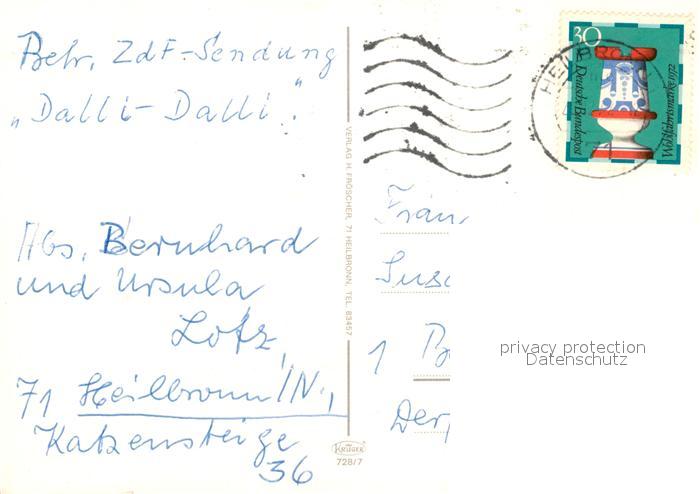 Betr. ZdF.-Sendung
„Dalli-Dalli."
Abs. Bernhard
und Ursula
Lotz,
71 Heilbronn/N.,
Katzensteige
36
VERLAG H. FRÖSCHER, 71 HEILBRONN, TEL. 83457
KRÜGER
728/7
30
Deutsche Bundespost
Wohlfahrtsmarke 1972
1 B
privacy protection
Datenschutz